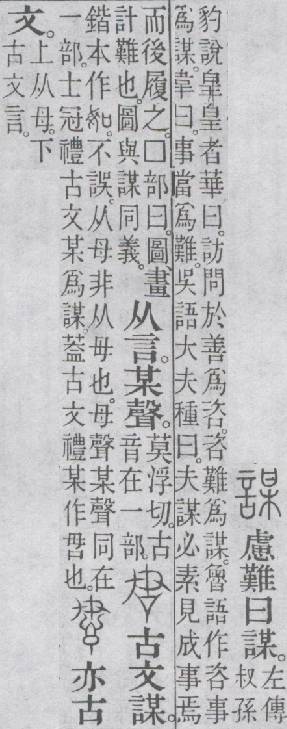 謀 慮難曰謀。左傳
叔孫
豹說皇皇者華曰。訪問於善爲咨。咨難爲謀。魯語作咨事
爲謀。韋曰。事當爲難。吳語大夫種曰。夫謀必素見成事焉
而後履之。囗部曰。圖、畫
計難也。圖與謀同義。
从言。某聲。
莫浮切。古
音在一部。
古文謀。
鍇本作。不誤。从母非从毋也。母聲某聲同在
一部。士冠禮古文某爲謀。葢古文禮某作𠰔也。
亦古
文。
上从母。下
古文言。